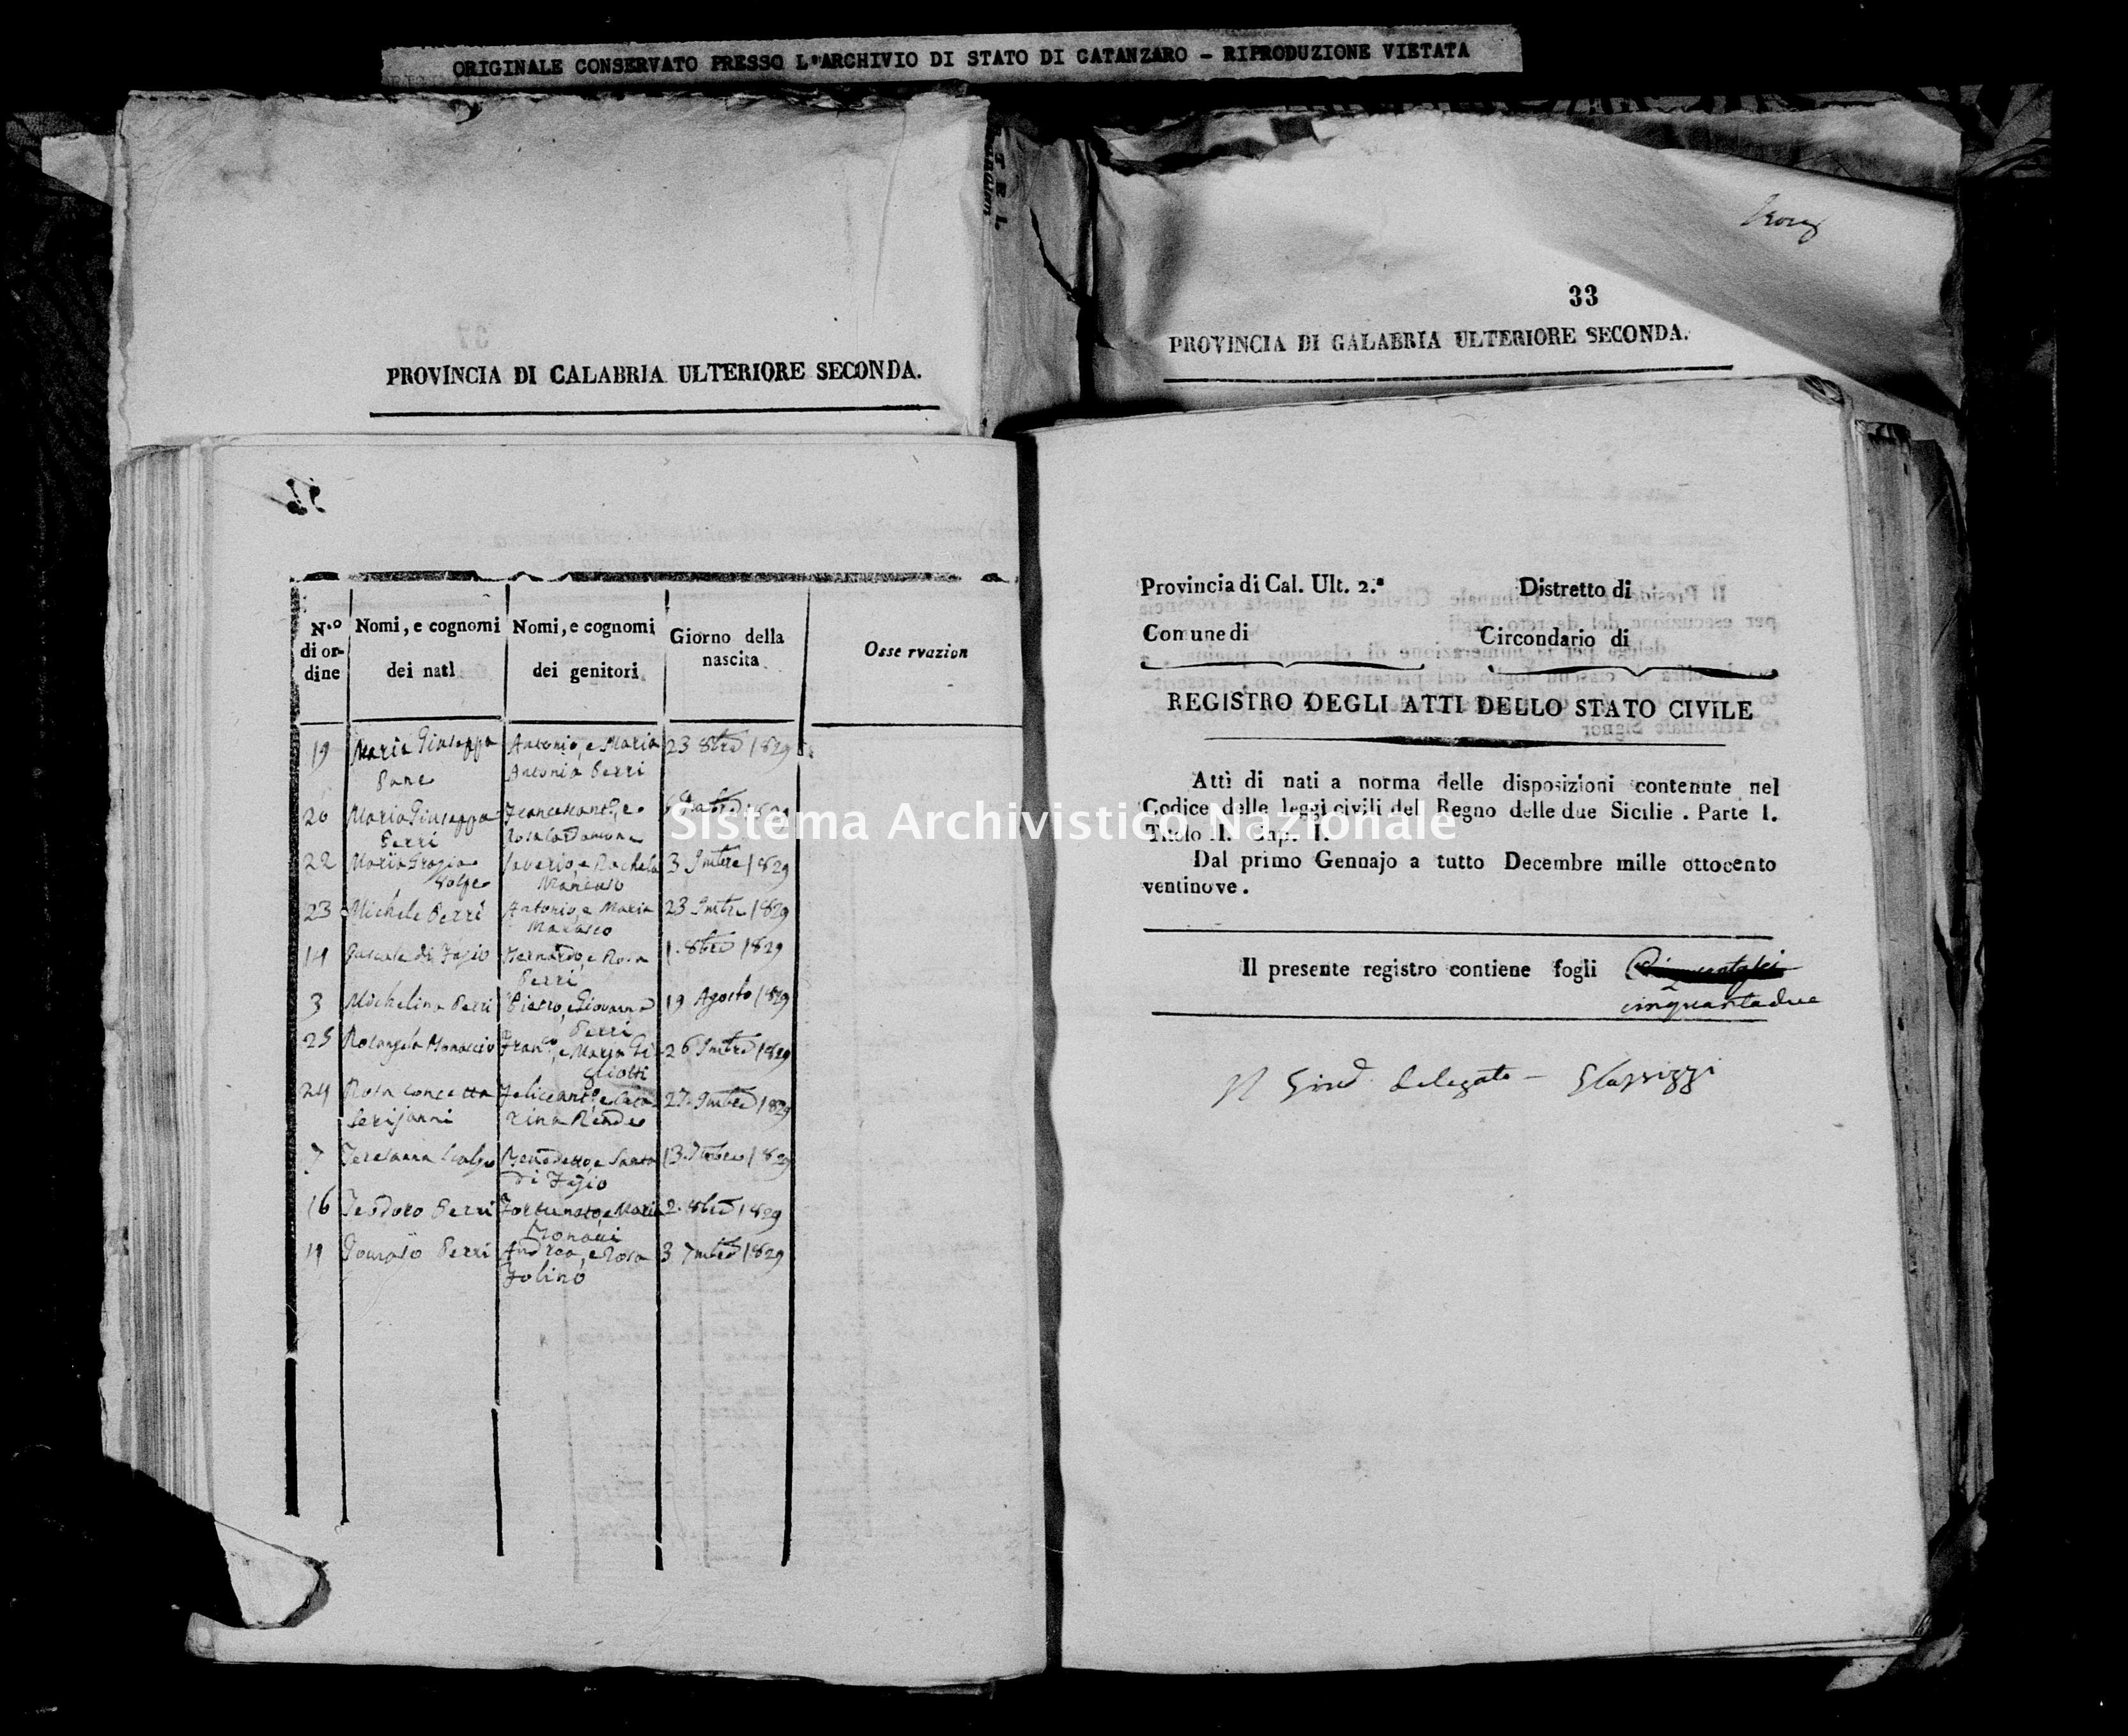 ORIGINALE CONSERVATO PRESSO L'ARCHIVIO DI STATO DI CATANZARO - RIPRODUZIONE VIETATA
PROVINCIA DI CALABRIA ULTERIORE SECONDA.
N.o di ordine
Nomi, e cognomi dei nati
Nomi, e cognomi dei genitori
Giorno della nascita
Osse rvazion
19 Maria Giuseppa Antonio, e Maria 23 8bre 1829
Pane Antonia Perri
20 Maria Giuseppa
Perri
22 Maria Grazia Saverio, e Rachela 3 9mbre 1829
Volpe Mancuso
23 Michele Perri Antonio, e Maria 23 9mbre 1829
14 Pascale di Fazio Bernardo, e Rosa 1. 8bre 1829
Perri
3 Michelina Perri Pietro, e Giovanna 19 Agosto 1829
Perri
25 Fran.co, e Maria Gi 26 9mbre 1829
gliotti
24 Rosa Concetta 27. 9mbre 1829
rina
7 Benedetto, e Santa 13. 7mbre 1829
di Fazio
16 Teodoro Perri Fortunato, e Maria 2. 8bre 1829
Monaci
11 Tomaso Perri Andrea, e Rosa 3 7mbre 1829
Folino
33
PROVINCIA DI CALABRIA ULTERIORE SECONDA.
Provincia di Cal. Ult. 2.a Distretto di
Comune di Circondario di
REGISTRO DEGLI ATTI DELLO STATO CIVILE
Atti di nati a norma delle disposizioni contenute nel
Codice delle leggi civili del Regno delle due Sicilie . Parte I.
Titolo II. Cap. I.
Dal primo Gennajo a tutto Decembre mille ottocento
ventinove .
Il presente registro contiene fogli
cinquantadue
Il Giud. delegato –
Sistema Archivistico Nazionale